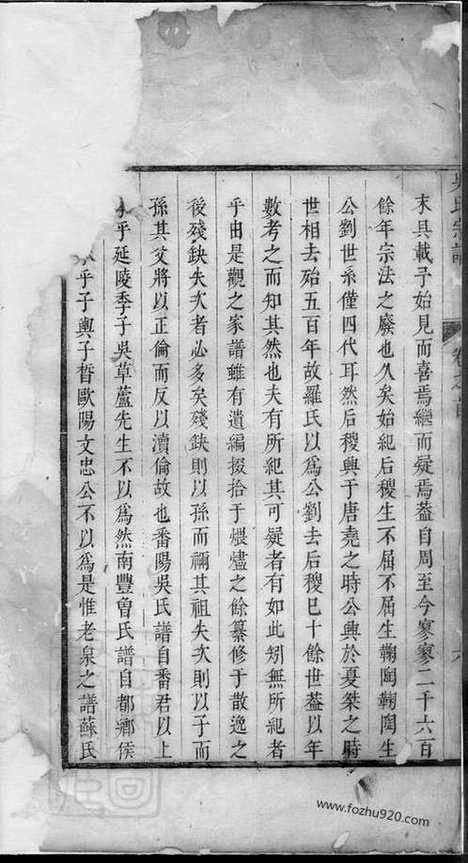 吳氏宗譜 卷之首 六
末具載予始見而喜焉繼而疑焉葢自周至今寥寥二千六百
餘年宗法之廢也久矣始紀后稷生不屈不屈生鞠陶鞠陶生
公劉世系僅四代耳然后稷興于唐堯之時公興於夏桀之時
世相去殆五百年故羅氏以爲公劉去后稷巳十餘世葢以年
數考之而知其然也夫有所紀其可疑者有如此矧無所紀者
乎由是觀之家譜雖有遺編掇拾于煨燼之餘纂修于散逸之
後殘缺失次者必多矣殘缺則以孫而禰其祖失次則以子而
孫其父將以正倫而反以瀆倫故也番陽吳氏譜自番君以上
乎延陵季子吳草蘆先生不以爲然南豐曾氏譜自都鄉侯
乎子輿子晳歐陽文忠公不以爲是惟老泉之譜蘇氏
www.fozhu920.com